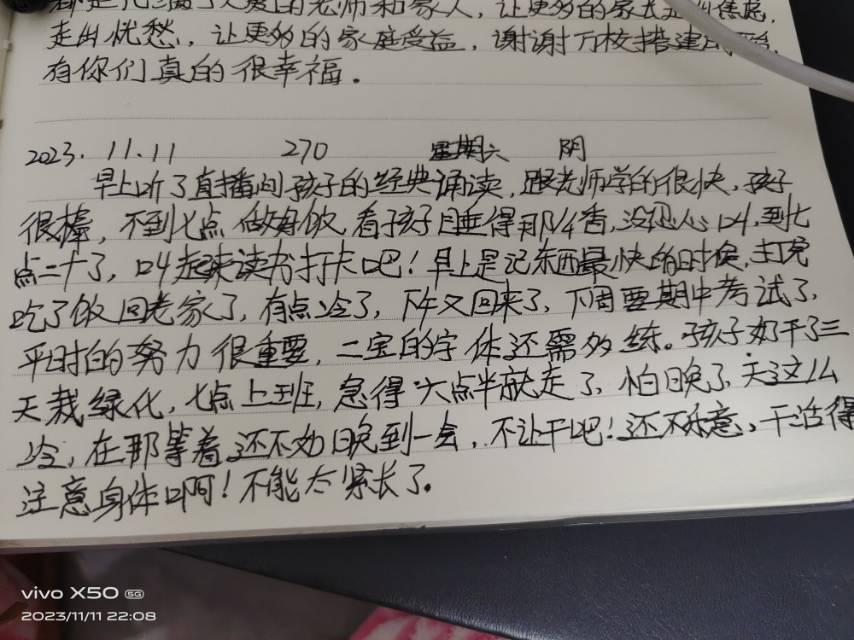 都是充满了大爱的老师和家人，让更多的家长走出焦虑，
走出忧愁，让更多的家庭受益，谢谢万校搭建
有你们真的很幸福。
2023.11.11 270 星期六 阴
早上听了直播间孩子的经典诵读，跟老师学的很快，孩子
很棒，不到七点做好饭，看孩子睡得那么香，没忍心叫，到七
点二十了，叫起来读书打卡吧！早上是记东西最快的时候，打完
吃了饭回老家了，有点冷了，下午又回来了，下周要期中考试了，
平时的努力很重要，二宝的字体还需多练。孩子奶干了三
天栽绿化，七点上班，急得六点半就走了，怕晚了，天这么
冷，在那等着还不如晚到一会，不让干吧！还不乐意，干活得
注意身体啊！不能太紧长了。
vivo X50 5G
2023/11/11 22:08